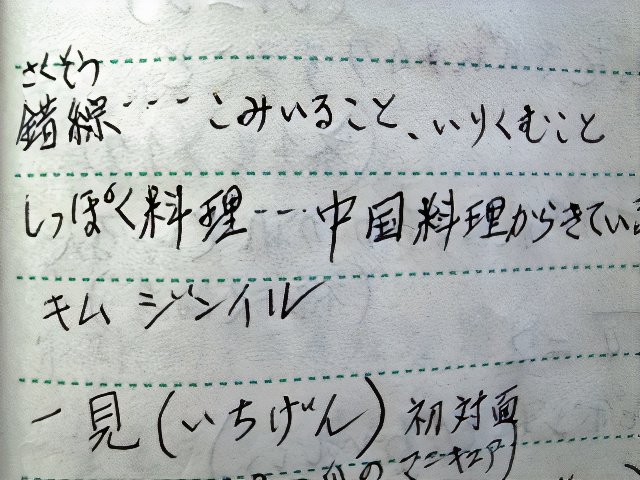 さくそう
錯綜・・・こみいること、いりくむこと
しっぽく料理・・・中国料理からきている
キム ジンイル
一見(いちげん) 初対面
の マニキュア)